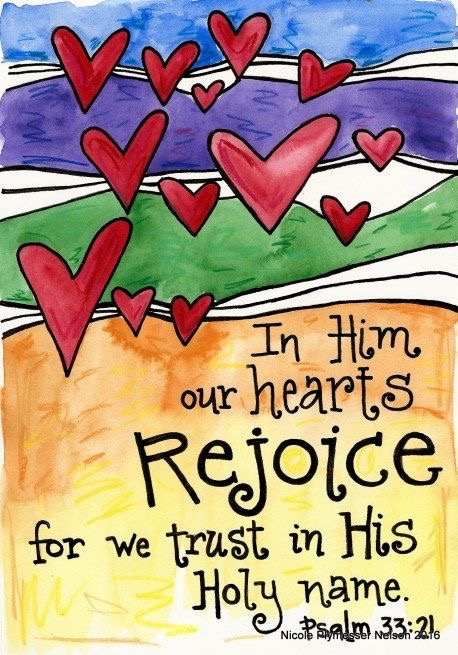 In Him
our hearts
Rejoice
for we trust in His
Holy name.
Psalm 33:21
Nicole Plymesser Nelson 2016